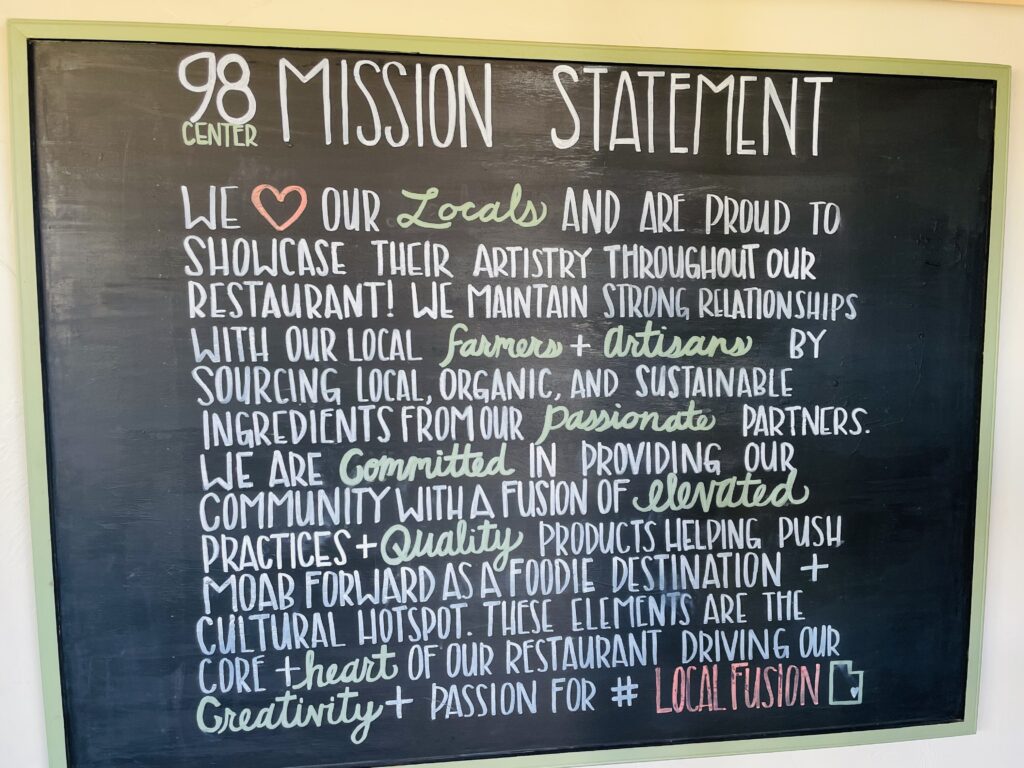 98 MISSION STATEMENT
CENTER
WE ♡ OUR Locals AND ARE PROUD TO
SHOWCASE THEIR ARTISTRY THROUGHOUT OUR
RESTAURANT! WE MAINTAIN STRONG RELATIONSHIPS
WITH OUR LOCAL farmers + Artisans BY
SOURCING LOCAL, ORGANIC, AND SUSTAINABLE
INGREDIENTS FROM OUR passionate PARTNERS.
WE ARE Committed IN PROVIDING OUR
COMMUNITY WITH A FUSION OF elevated
PRACTICES + Quality PRODUCTS HELPING PUSH
MOAB FORWARD AS A FOODIE DESTINATION +
CULTURAL HOTSPOT. THESE ELEMENTS ARE THE
CORE + heart OF OUR RESTAURANT DRIVING OUR
Creativity + PASSION FOR # LOCAL FUSION